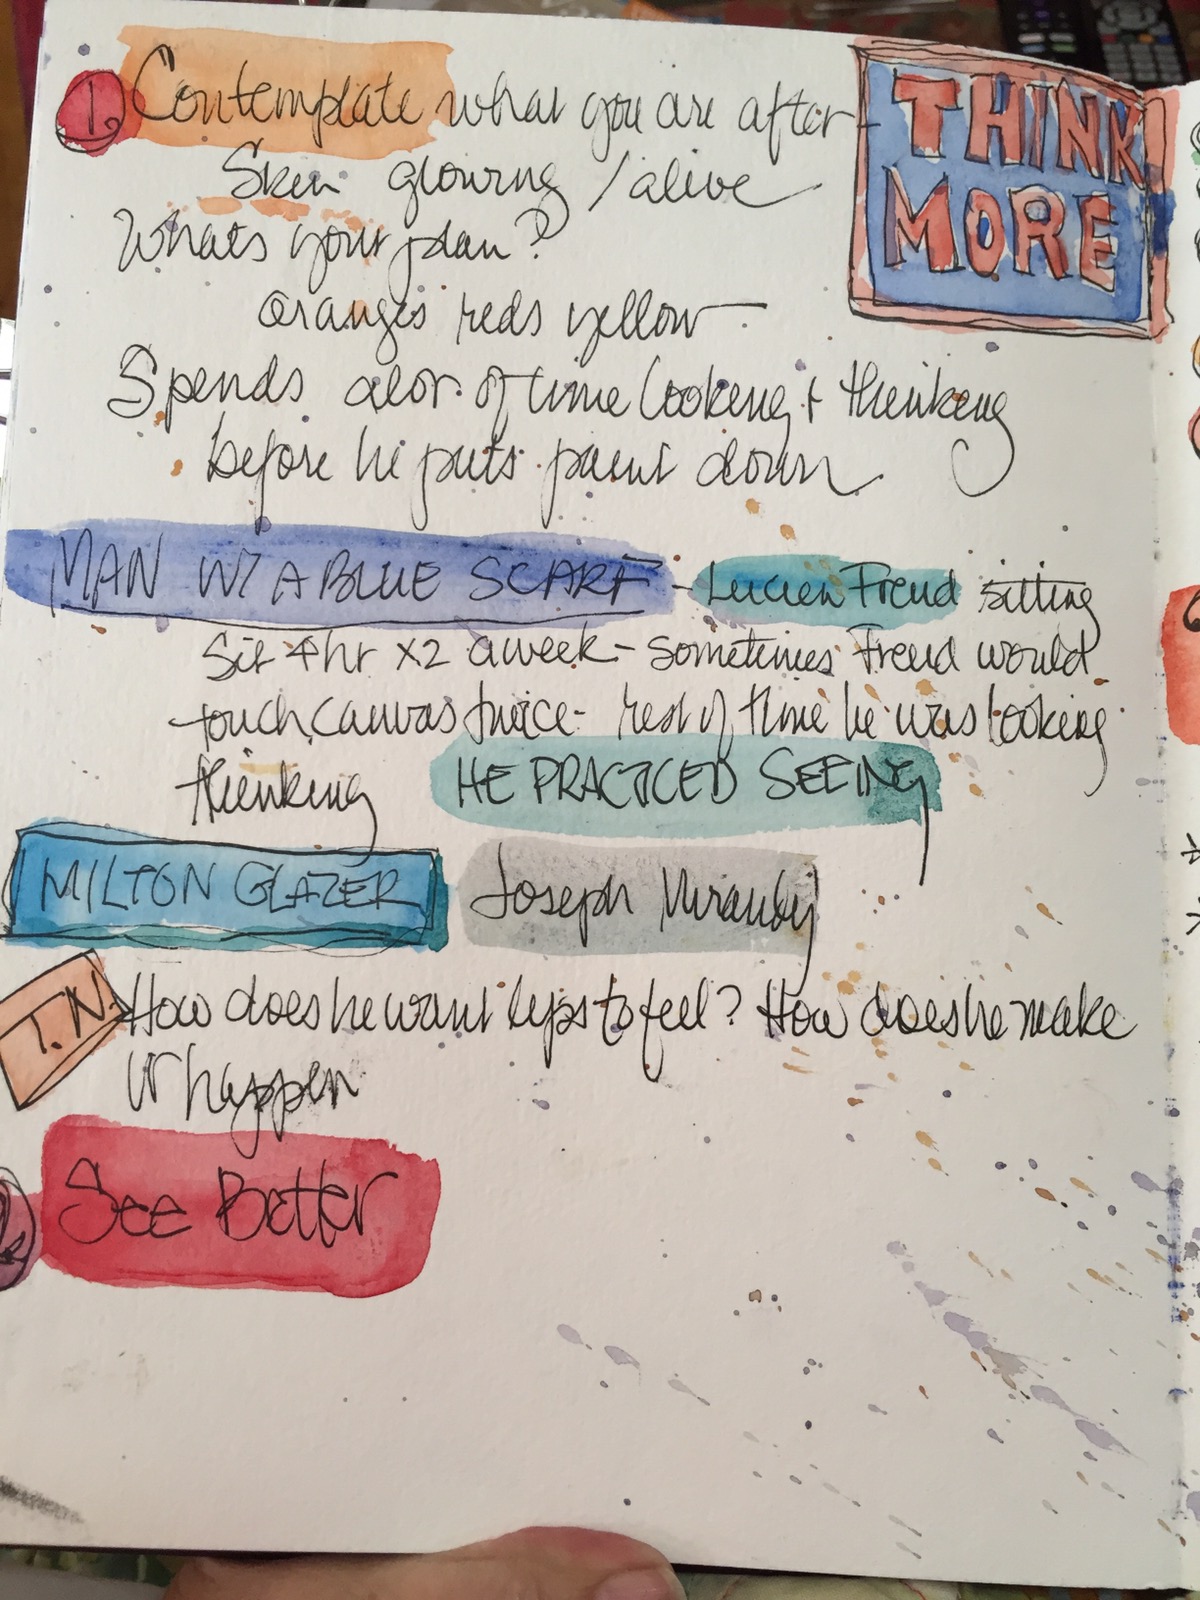 1. Contemplate what you are after -
THINK
MORE
Skin glowing / alive
Whats your plan?
Oranges reds yellow
Spends alot of time looking + thinking
before he puts paint down
MAN W/ A BLUE SCARF - Lucien Freud sitting
Sit 4hr x2 a week - sometimes Freud would
touch canvas twice - rest of time he was looking
thinking HE PRACTICED SEEING
MILTON GLAZER Joseph
T.N. How does he want lips to feel? How does he make
it happen
See Better